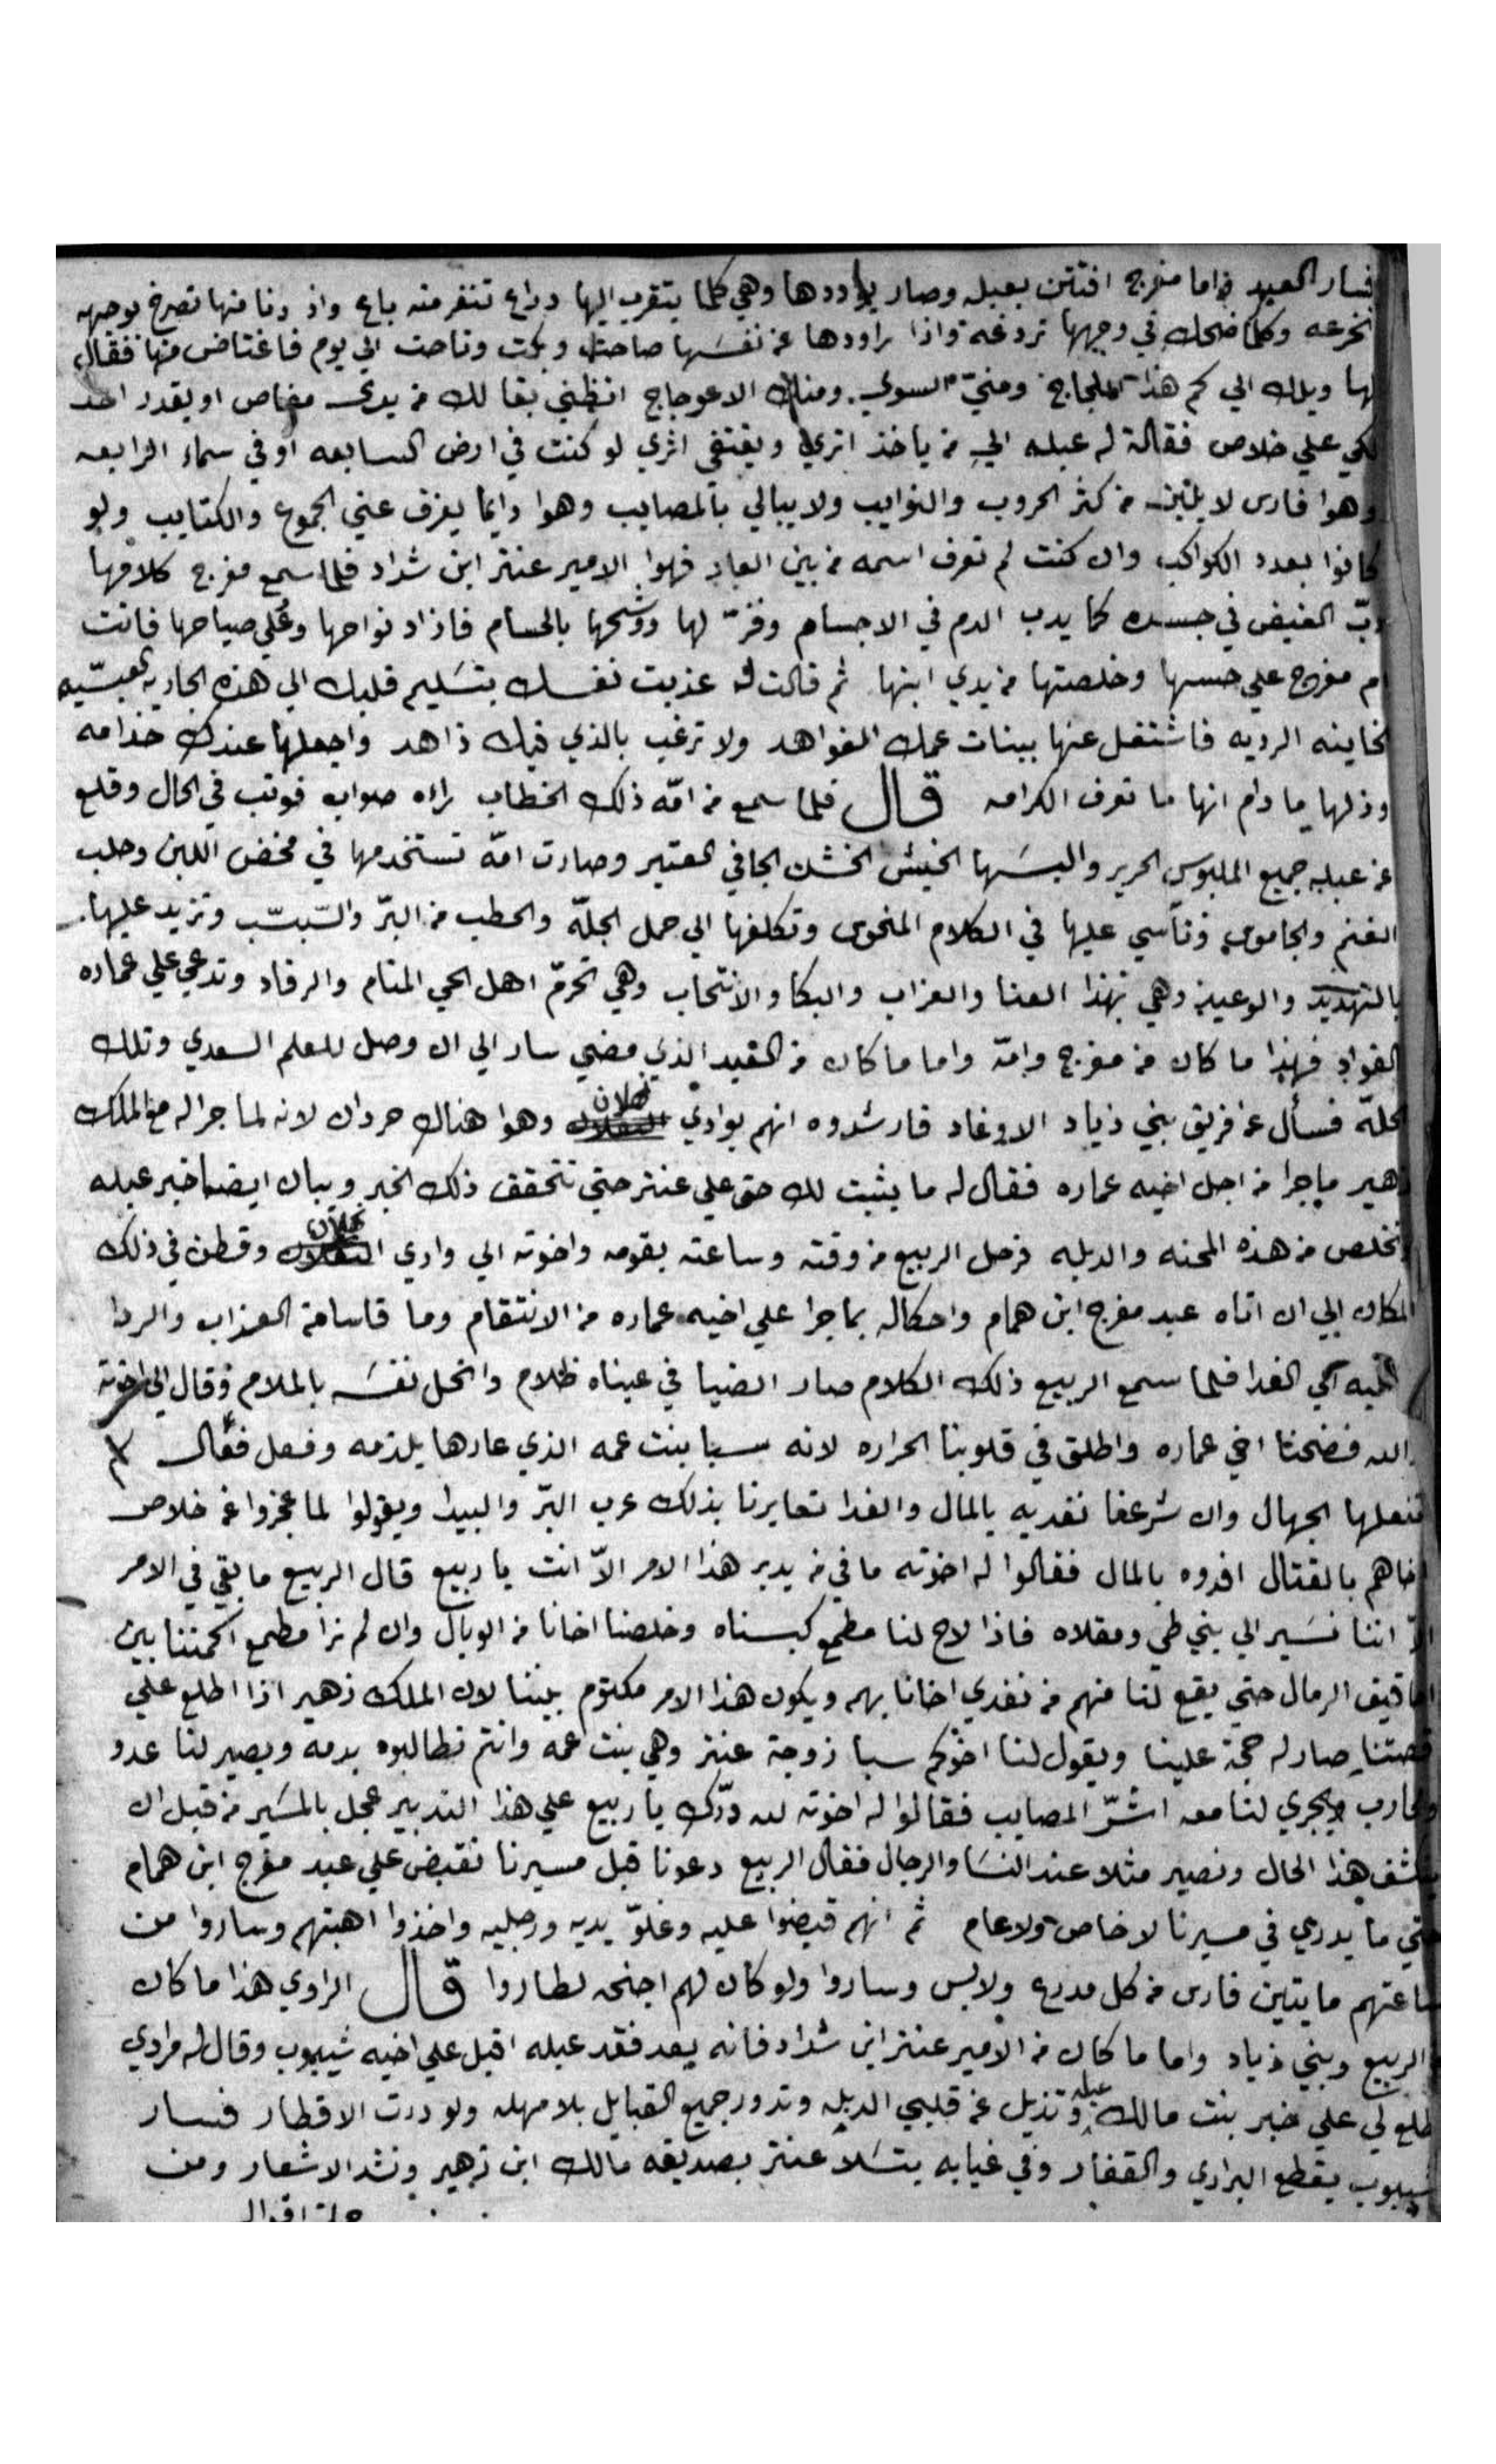 فسار العبد واما مفرج افتتن بعبله وصار يراودها وهي كلما يتقرب اليها دراع تنفر منه باع واذ دنا منها تصرخ بوجهه
وكلما ضحك في وجهها تردغه واذا راودها عن نفسها صاحت وبكت وناحت الي يوم فاغتاض منها فقال
لها ويلك الي كم هذا اللجاج ومنيّ السوي ومنك الاعوجاج اتظني بقا لك من يدي مفاص او يقدر احد
لكي علي خلاص فقالة له عبله الي من ياخذ اتري ويقتفي اثري لو كنت في ارض السابعه او في سماء الرابعه
وهوا فارس لا من كثر الحروب والنوايب ولا يبالي بالمصايب وهوا دايما يفرق عني الجموع والكتايب ولو
كانوا بعدد الكواكب وان كنت لم تعرف اسمه من بين العباد فهوا الامير عنتر ابن شداد فلما سمع مفرج كلامها
دبّ الغيض في جسده كما يدب الدم في الاجسام وفزّ لها ووشحها بالحسام فازاد نواحها وعُلي صياحها فاتت
ام مفرج علي حسها وخلصتها من يدي ابنها ثم قالت له عذبت نفسك بتسليم قلبك الي هذه الجاريه العبسّيه
الخاينه الرديه فاشتغل عنها ببنات عمك النواهد ولا ترغب بالذي فيك زاهد واجعلها عندك خدامه
وذلها ما دام انها ما تعرف الكرامه قال فلما سمع من امّه ذلك الخطاب راه صواب فوتب في الحال وقلع
عن عبله جميع الملبوس الحرير والبسها الخيش الخشن الجافي العتير وصارت امّه تستخدمها في مخض اللبن وحلب
الغنم والجاموس وتاسي عليها في الكلام المنحوس وتكلفها الي حمل الجلّه والحطب من البرّ والسّبسّب وتزيد عليها
بالتهديد والوعيد وهي بهذا العنا والعزاب والبكا والانتحاب وهي تحرمّ اهل الحي المنام والرقاد وتدعي علي عماره
القواد فهذا ما كان من مفرج وامّه واما ما كان من العبد الذي مضي سار الي ان وصل للعلم السعدي وتلك
الحلّه فسأل عن فريق بني زياد الاوغاد فارشدوه انهم بوادي وهوا هناك حردان لانه لما جرا له مع الملك
زهير ما جرا من اجل اخيه عماره فقال له ما يثبت لك حق علي عنتر حتي تتحقق ذلك الخبر ويبان ايضا خبر عبله
وتخلص من هذه المحنه والدبله فرحل الربيع من وقته وساعته بقومه واخوته الي وادي وقطن في ذلك
المكان الي ان اتاه عبد مفرج ابن همام واحكا له بما جرا علي اخيه عماره من الانتقام وما قاسا من العذاب والردا
الي الفدا فلما سمع الربيع ذلك الكلام صار الضيا في عيناه ظلام وانحل نفسَه بالملام وقال الي اخوته
والله فضحنا اخي عماره واطلق في قلوبنا الحراره لانه سبا بنت عمه الذي عارها يلزمه وفعل فعال لم
تفعلها الجهال وان شرعنا نفديه بالمال والفدا تعايرنا بذلك عرب البرّ والبيدا ويقولوا لما عجزوا عن خلاص
اخاهم بالقتال افدوه بالمال فقالوا له اخوته ما في من يدبر هذا الامر الاّ انت يا ربيع قال الربيع ما بقي في الامر
الاّ اننا نسَير الي بني طي ومقلاه فاذا لاح لنا مطمع كبسناه وخلصنا اخانا من الوبال وان لم نرا مطمع اكمننا بين
احاقيف الرمال حتي يقع لنا منهم من نفدي اخانا بهم ويكون هذا الامر مكتوم بيننا لان الملك زهير اذا اطلع علي
قصتنا صار له حجة علينا ويقول لنا اخوكم سبا زوجة عنتر وهي بنت عمه وانتم تطالبوه بدمه ويصير لنا عدو
ومحارب ويجري لنا معه اشرّ المصايب فقالوا له اخوته لله درّك يا ربيع علي هذا التدبير عجل بالمسَير من قبل ان
يكشف هذا الحال ونصير مثلا عند النسَا والرجال فقال الربيع دعونا قبل مسيرنا نقبض علي عبد مفرج ابن همام
حتي ما يدري في مسيرنا لا خاص ولا عام ثم انهم قبضوا عليه وغلوّ يديه ورجليه واخذوا اهبتهم وساروا من
ساعتهم مايتين فارس من كل مدرع ولابس وساروا ولو كان لهم اجنحه لطاروا قال الراوي هذا ما كان
الربيع وبني زياد واما ما كان من الامير عنتر ابن شداد فانه بعد فقد عبله اقبل علي اخيه شيبوب وقال له مرادي
تطلع لي علي خبر بنت مالك عبله وتزيل عن قلبي الدبله وتدور جميع القبايل بلا مهله ولو درت الاقطار فسار
شيبوب يقطع البراري والقفار وفي غيابه يتسَلا عنتر بصديقه مالك ابن زهير ونشد الاشعار ومن